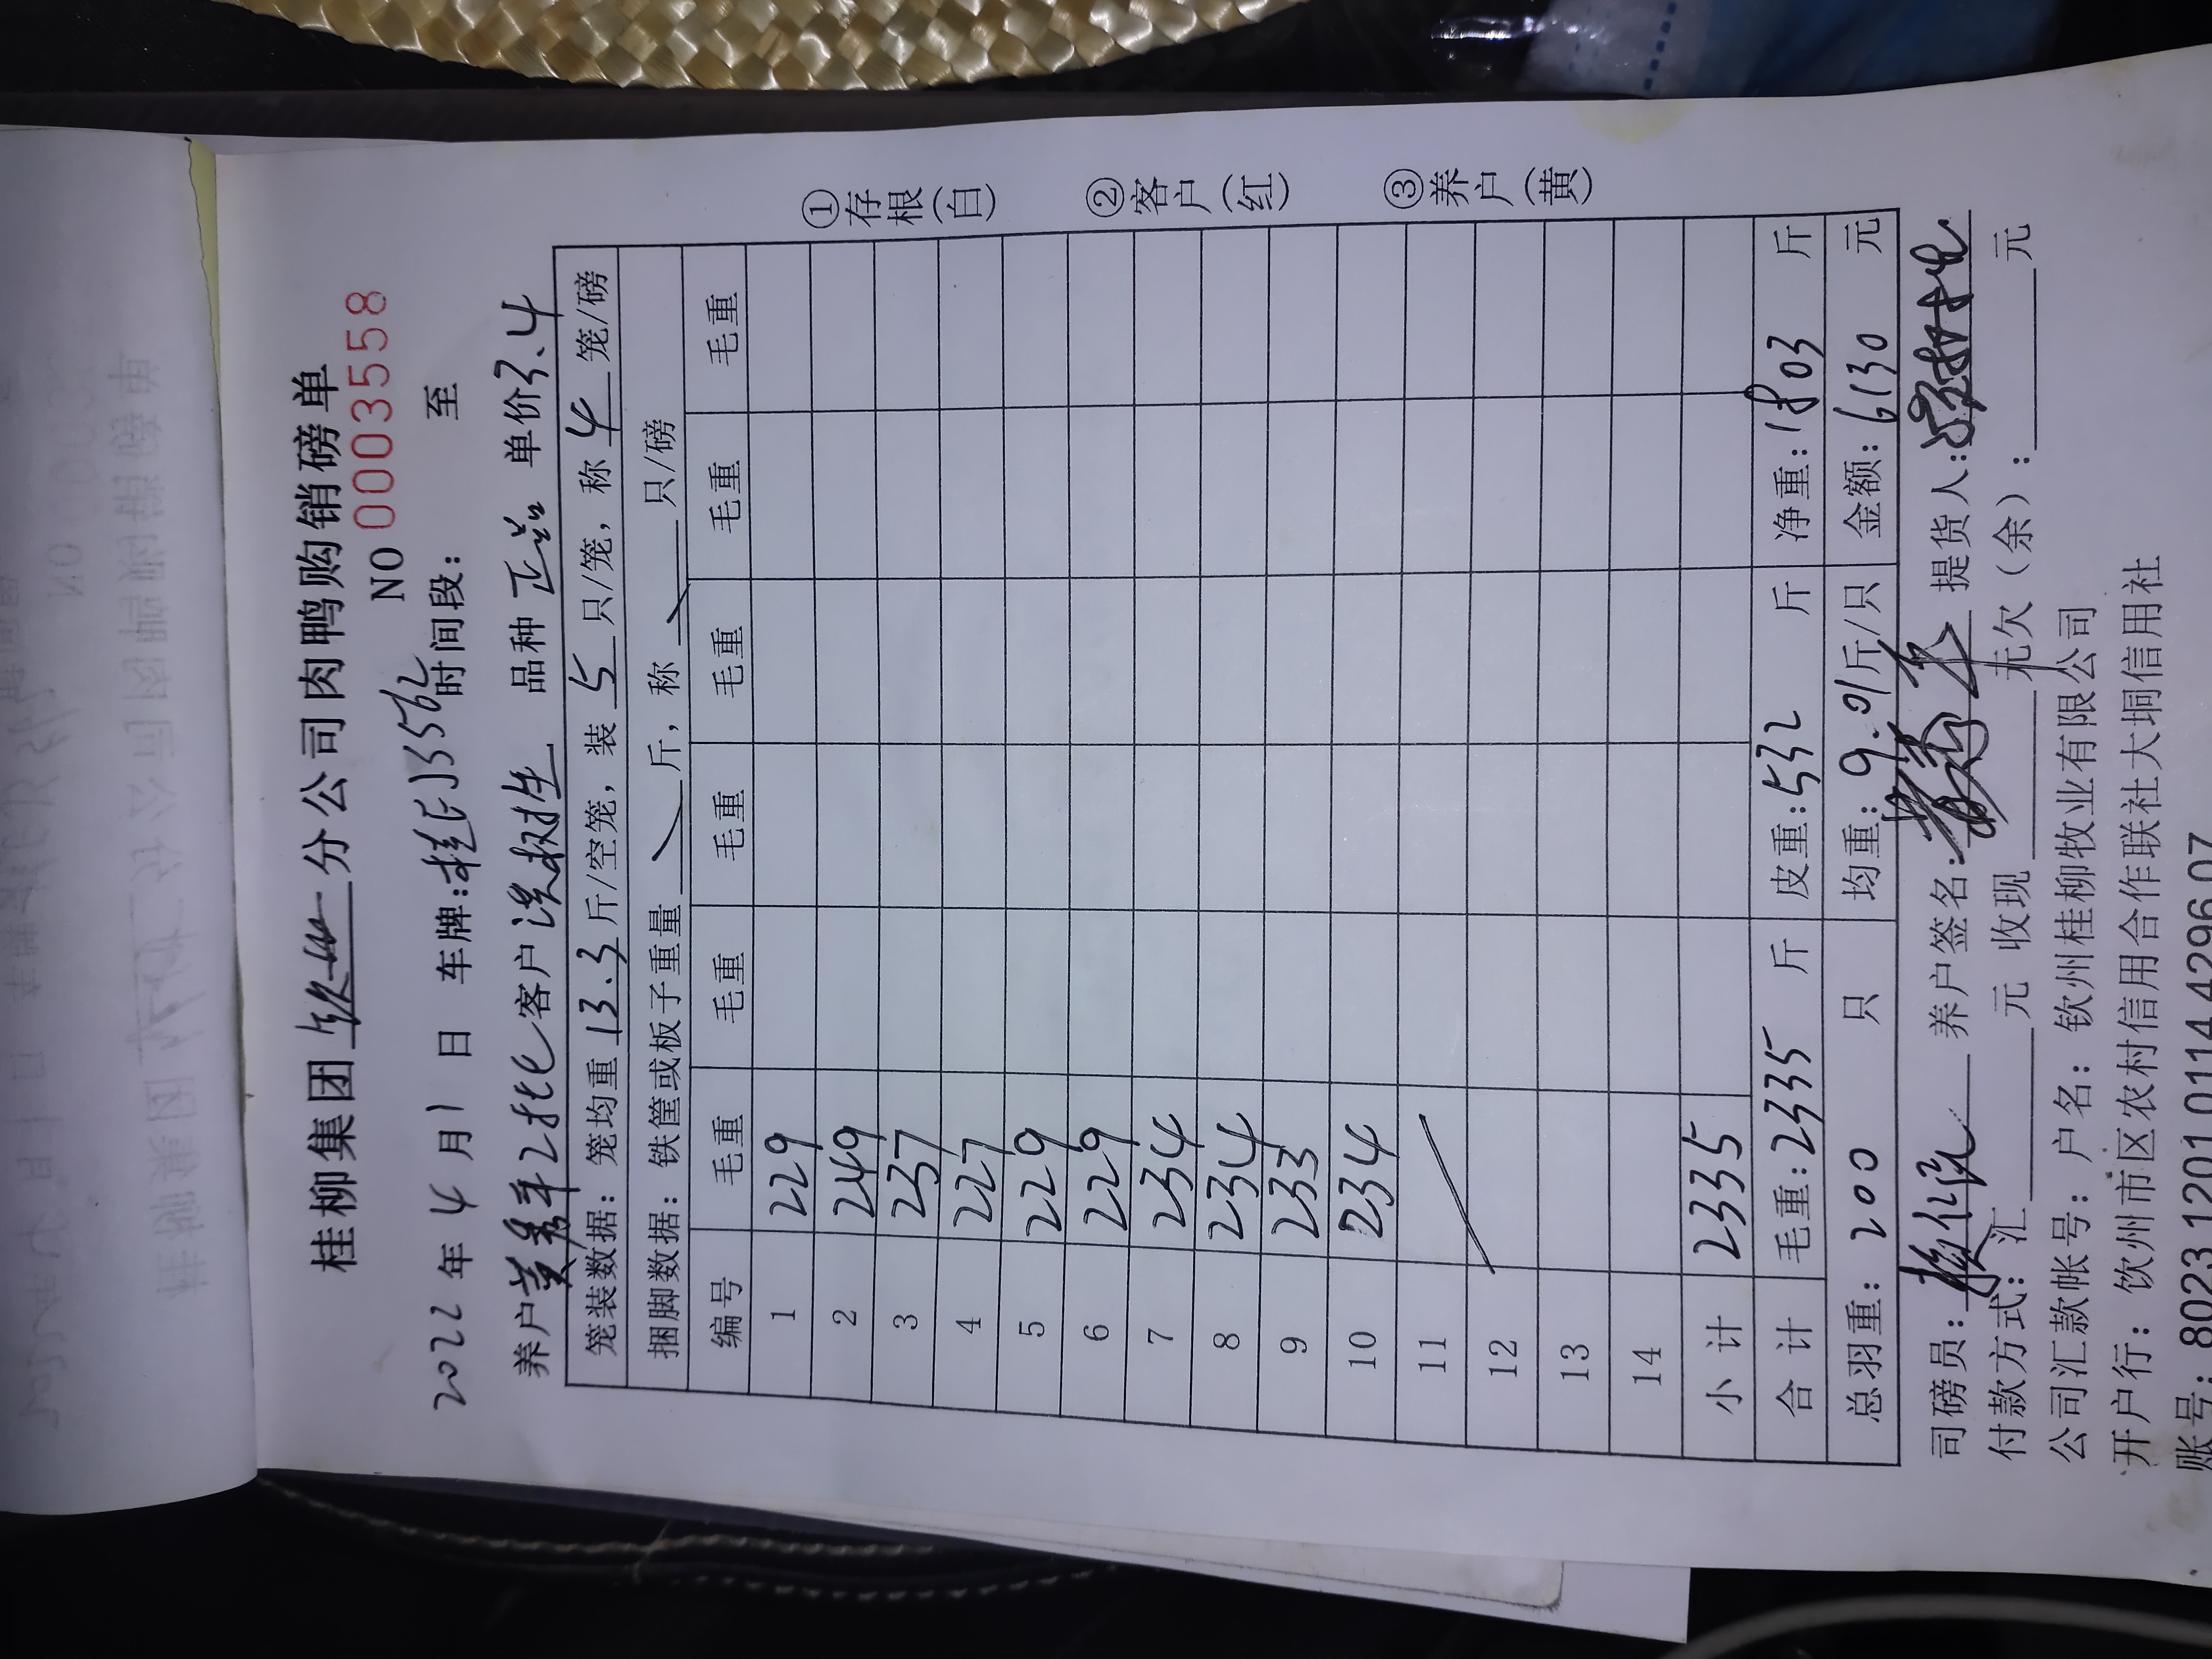 桂柳集团 钦州 分公司肉鸭购销磅单
NO 0003558
2022年4月1日 车牌:桂 J3562 时间段: 至
养户 黄秀年2批 客户 洪树生 品种 正品 单价3.4
笼装数据:笼均重 13.3 斤/空笼,装 5 只/笼,称 4 笼/磅
捆脚数据:铁筐或板子重量 斤,称 只/磅
编号 毛重 毛重 毛重 毛重 毛重 毛重
1 229
2 249
3 237
4 227
5 229
6 229
7 234
8 234
9 233
10 234
11
12
13
14
小计 2335
合计 毛重:2335 斤 皮重:532 斤 净重:1803 斤
总羽重:200 只 均重:9.01斤/只 金额:6130 元
①存根(白) ②客户(红) ③养户(黄)
司磅员: 养户签名: 提货人:
付款方式:汇 元 收现 元欠(余): 元
公司汇款帐号:户名:钦州桂柳牧业有限公司
开户行:饮州市区农村信用合作联社大垌信用社
账号:8023 1201 0114 4296 07